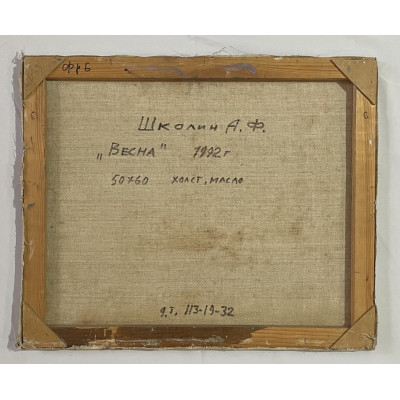 Фр Б
Школин А.Ф.
„Весна" 1992 г
50х60 холст, масло
д.т. 113-19-32